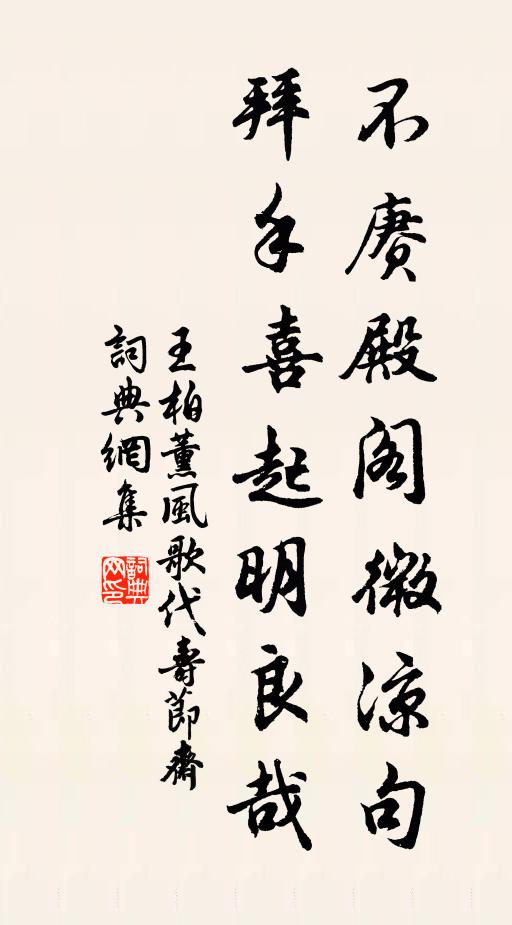 不賡殿阁微涼句
拜手喜起明良哉
王柏薰風歌代壽節齋
詞典網集
詞典网印